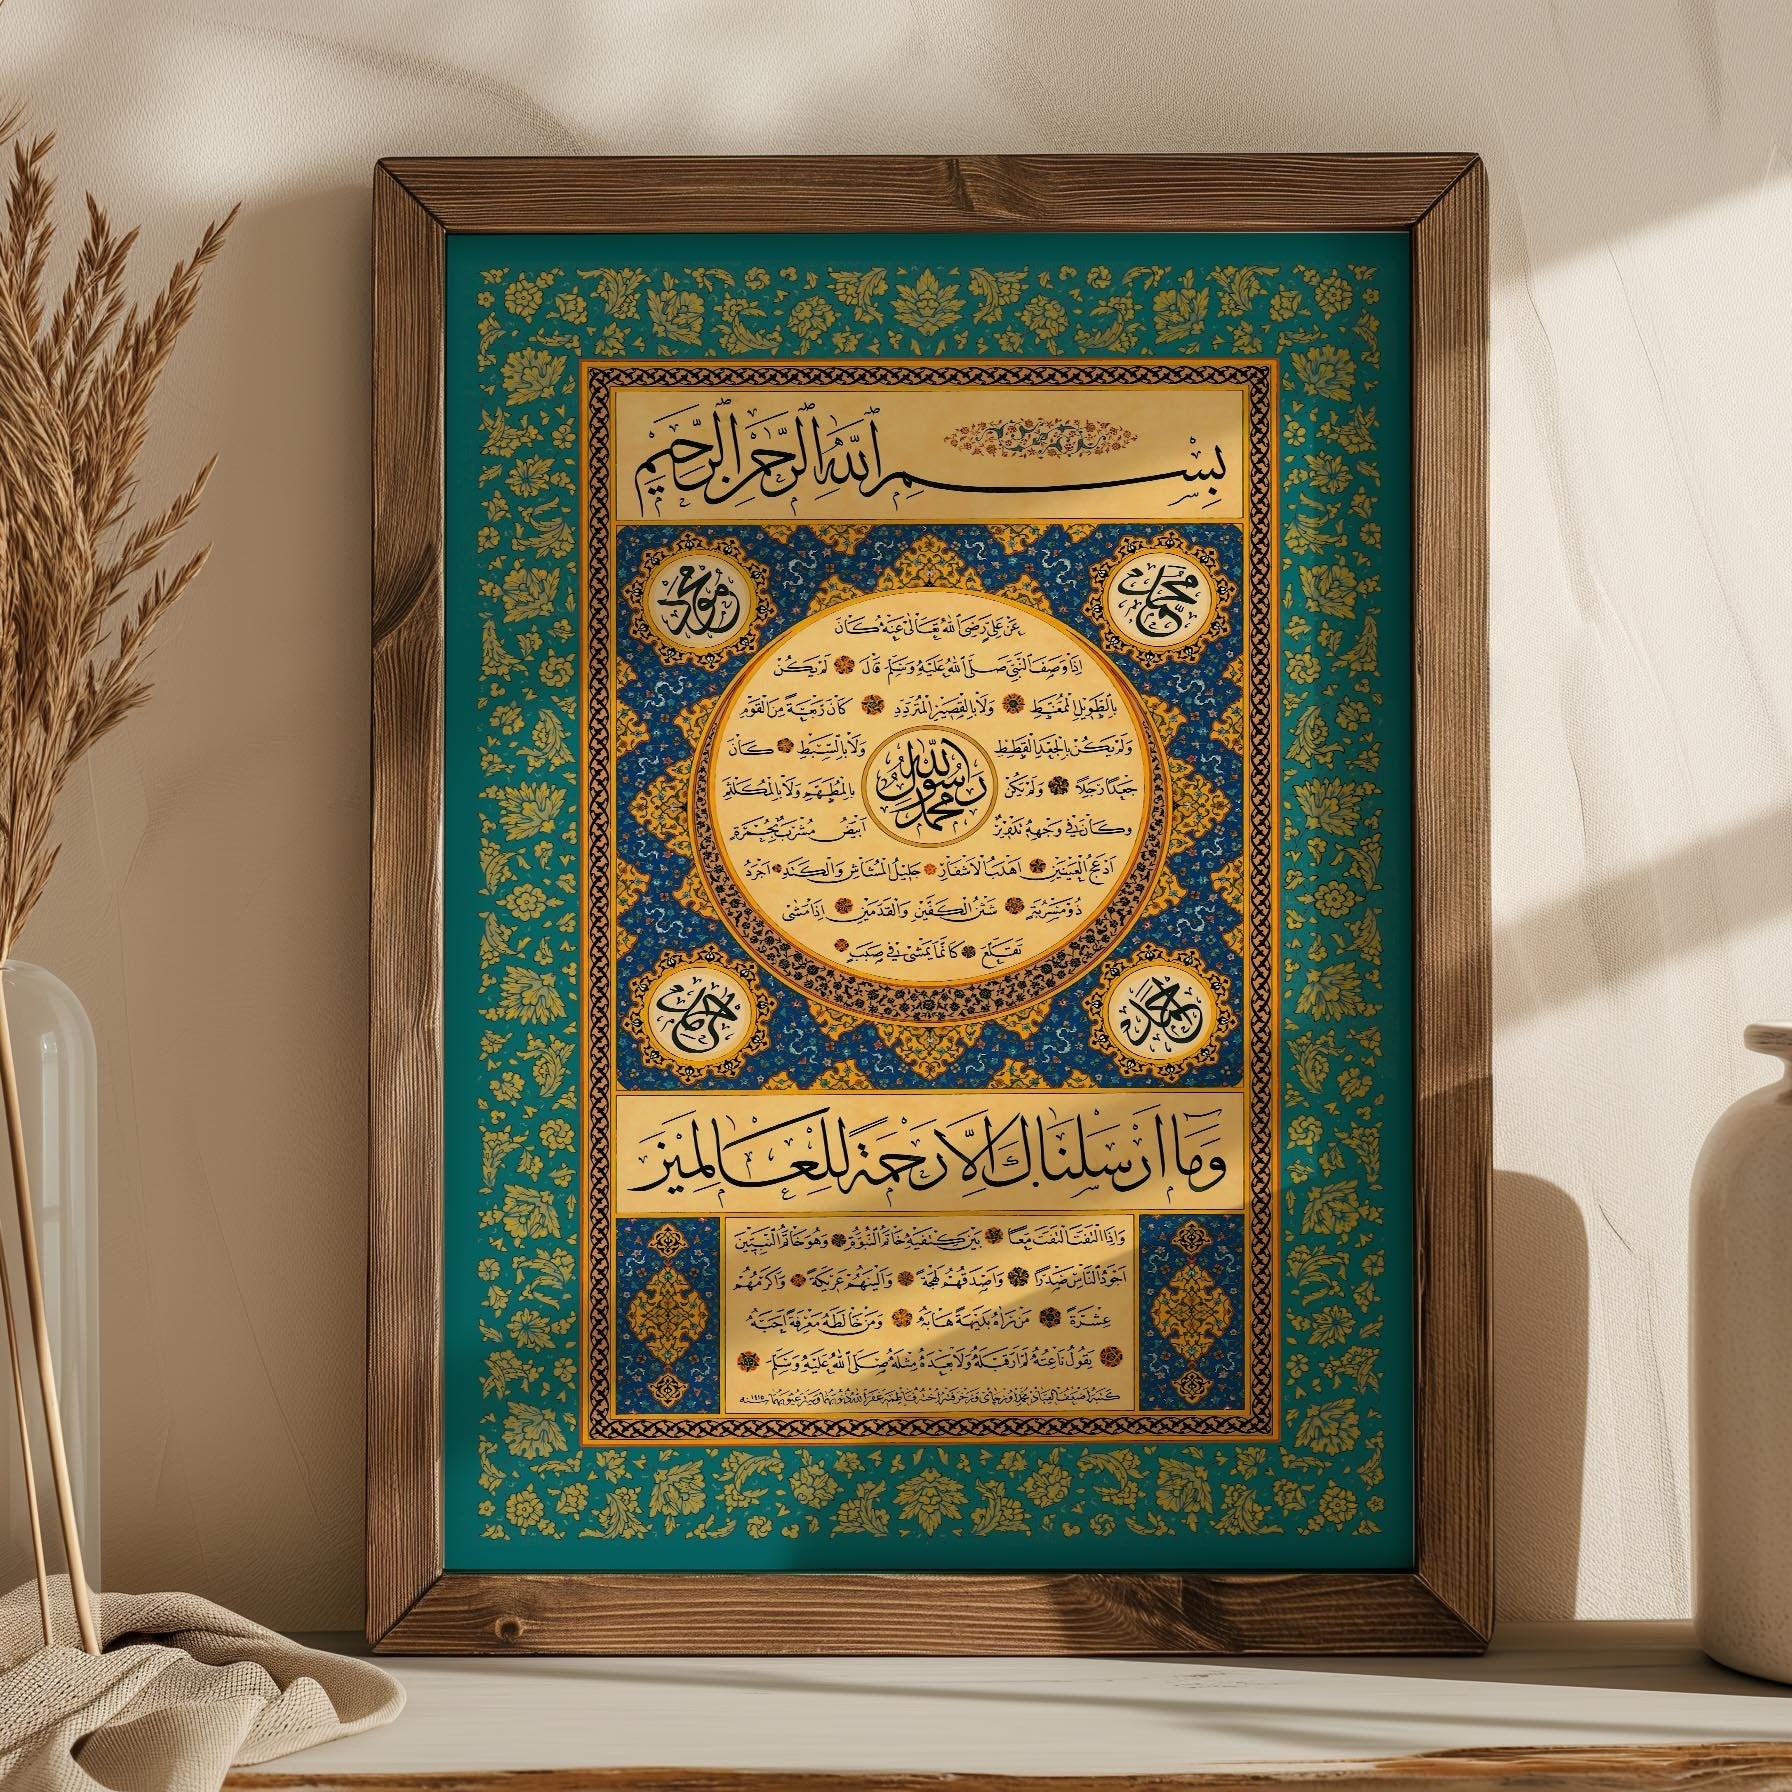 بِسْمِ اللّٰهِ الرَّحْمٰنِ الرَّحِيمِ
محمد
محمود
عَنْ عَلِيٍّ رَضِيَ اللهُ تَعَالٰى عَنْهُ كَانَ
اِذَا وَصَفَ النَّبِيَّ صَلَّى اللهُ عَلَيْهِ وَسَلَّمَ قَالَ لَمْ يَكُنْ
بِالطَّوِيلِ الْمُمَّغِطِ وَلَا بِالْقَصِيرِ الْمُتَرَدِّدِ كَانَ رَبْعَةً مِنَ الْقَوْمِ
وَلَمْ يَكُنْ بِالْجَعْدِ الْقَطَطِ وَلَا بِالسَّبْطِ كَانَ
جَعْدًا رَجِلًا وَلَمْ يَكُنْ بِالْمُطَهَّمِ وَلَا بِالْمُكَلْثَمِ
وَكَانَ فِي وَجْهِهِ تَدْوِيرٌ اَبْيَضُ مُشْرَبٌ بِحُمْرَةٍ
محمد رسول الله
اَدْعَجُ الْعَيْنَيْنِ اَهْدَبُ الْاَشْفَارِ جَلِيلُ الْمُشَاشِ وَالْكَتَدِ اَجْرَدُ
ذُو مَسْرُبَةٍ شَثْنُ الْكَفَّيْنِ وَالْقَدَمَيْنِ اِذَا مَشٰى
تَقَلَّعَ كَاَنَّمَا يَمْشِي فِي صَبَبٍ
احمد
وَمَا اَرْسَلْنَاكَ اِلَّا رَحْمَةً لِلْعَالَمِينَ
وَاِذَا الْتَفَتَ الْتَفَتَ مَعًا بَيْنَ كَتِفَيْهِ خَاتَمُ النُّبُوَّةِ وَهُوَ خَاتَمُ النَّبِيِّينَ
اَجْوَدُ النَّاسِ صَدْرًا وَاَصْدَقُهُمْ لَهْجَةً وَاَلْيَنُهُمْ عَرِيكَةً وَاَكْرَمُهُمْ
عِشْرَةً مَنْ رَاٰهُ بَدِيهَةً هَابَهُ وَمَنْ خَالَطَهُ مَعْرِفَةً اَحَبَّهُ
يَقُولُ نَاعِتُهُ لَمْ اَرَ قَبْلَهُ وَلَا بَعْدَهُ مِثْلَهُ صَلَّى اللهُ عَلَيْهِ وَسَلَّمَ